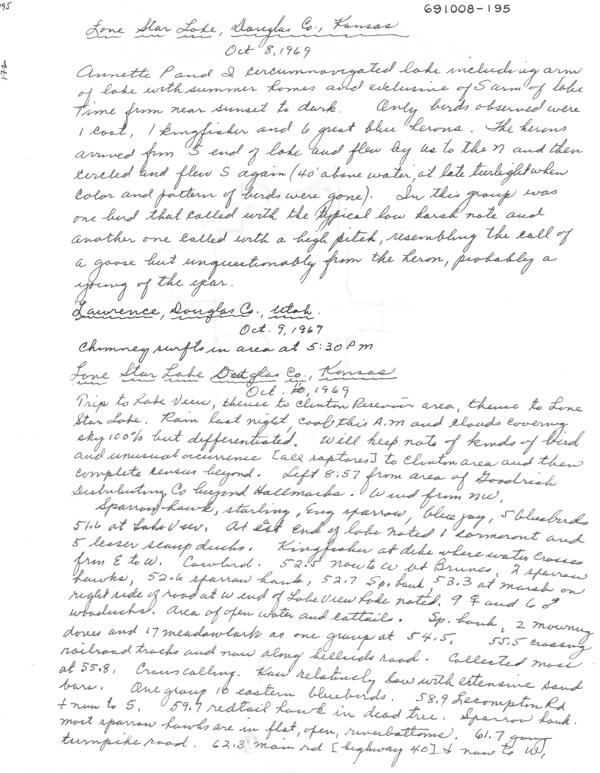 691008-195
195
172
Lone Star Lake, Douglas Co., Kansas
Oct 8, 1969
Annette P and I circumnavigated lake including arm
of lake with summer homes and exclusive of S arm of lake
time from near sunset to dark. Only birds observed were
1 coot, 1 kingfisher and 6 great blue herons. The herons
arrived from S end of lake and flew by us to the N and then
circled and flew S again (40' above water, at late twilight when
color and pattern of birds were gone). In this group was
one bird that called with the typical low harsh note and
another one called with a high pitch, resembling the call of
a goose but unquestionably from the heron, probably a
young of the year.
Lawrence, Douglas Co., Utah.
Oct. 9, 1969
Chimney swifts in area at 5:30 PM
Lone Star Lake Douglas Co., Kansas
Oct. 10, 1969
Trip to Lake View, thence to Clinton Reservoir area, thence to Lone
Star Lake. Rain last night, cool this A.M and clouds covering
sky 100% but differentiated. Will keep note of kinds of bird
and unusual occurrence [all raptores] to Clinton area and then
complete census beyond. Left 8:57 from area of Goodrich
Distributing Co beyond Hallmarks. Wind from NW.
Sparrow hawk, starling, Eng sparrow, blue jay, 5 bluebirds
51.6 at Lake View. At Est end of lake noted 1 cormorant and
5 lesser scaup ducks. Kingfisher at dike where water crosses
from E to W. Cowbird. 52.5 now to W at Brunes, 2 sparrow
hawks, 52.6 sparrow hawk, 52.7 Sp. hawk 53.3 at marsh on
right side of road at W end of Lake View Lake noted, 9 ♀ and 6 ♂
woodducks. Area of open water and cattails. Sp. hawk, 2 mourning
doves and 17 meadowlark as one group at 54.5. 55.5 crossing
railroad tracks and now along hillside road. Collected moss
at 55.8. Crows calling. Kaw relatively low with extensive sand
bars. One group 10 eastern bluebirds. 58.9 Lecompton Rd
+ now to S. 59.7 redtail hawk in dead tree. Sparrow hawk.
most sparrow hawks are in flat, open, riverbottoms. 61.7 going
turnpike road. 62.3 main rd [highway 40] + now to W,